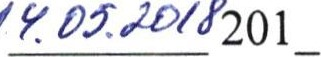 14.05.2018 201_